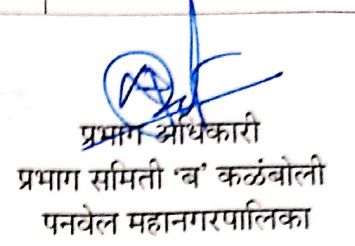 प्रभाग अधिकारी
प्रभाग समिती 'ब' कळंबोली
पनवेल महानगरपालिका